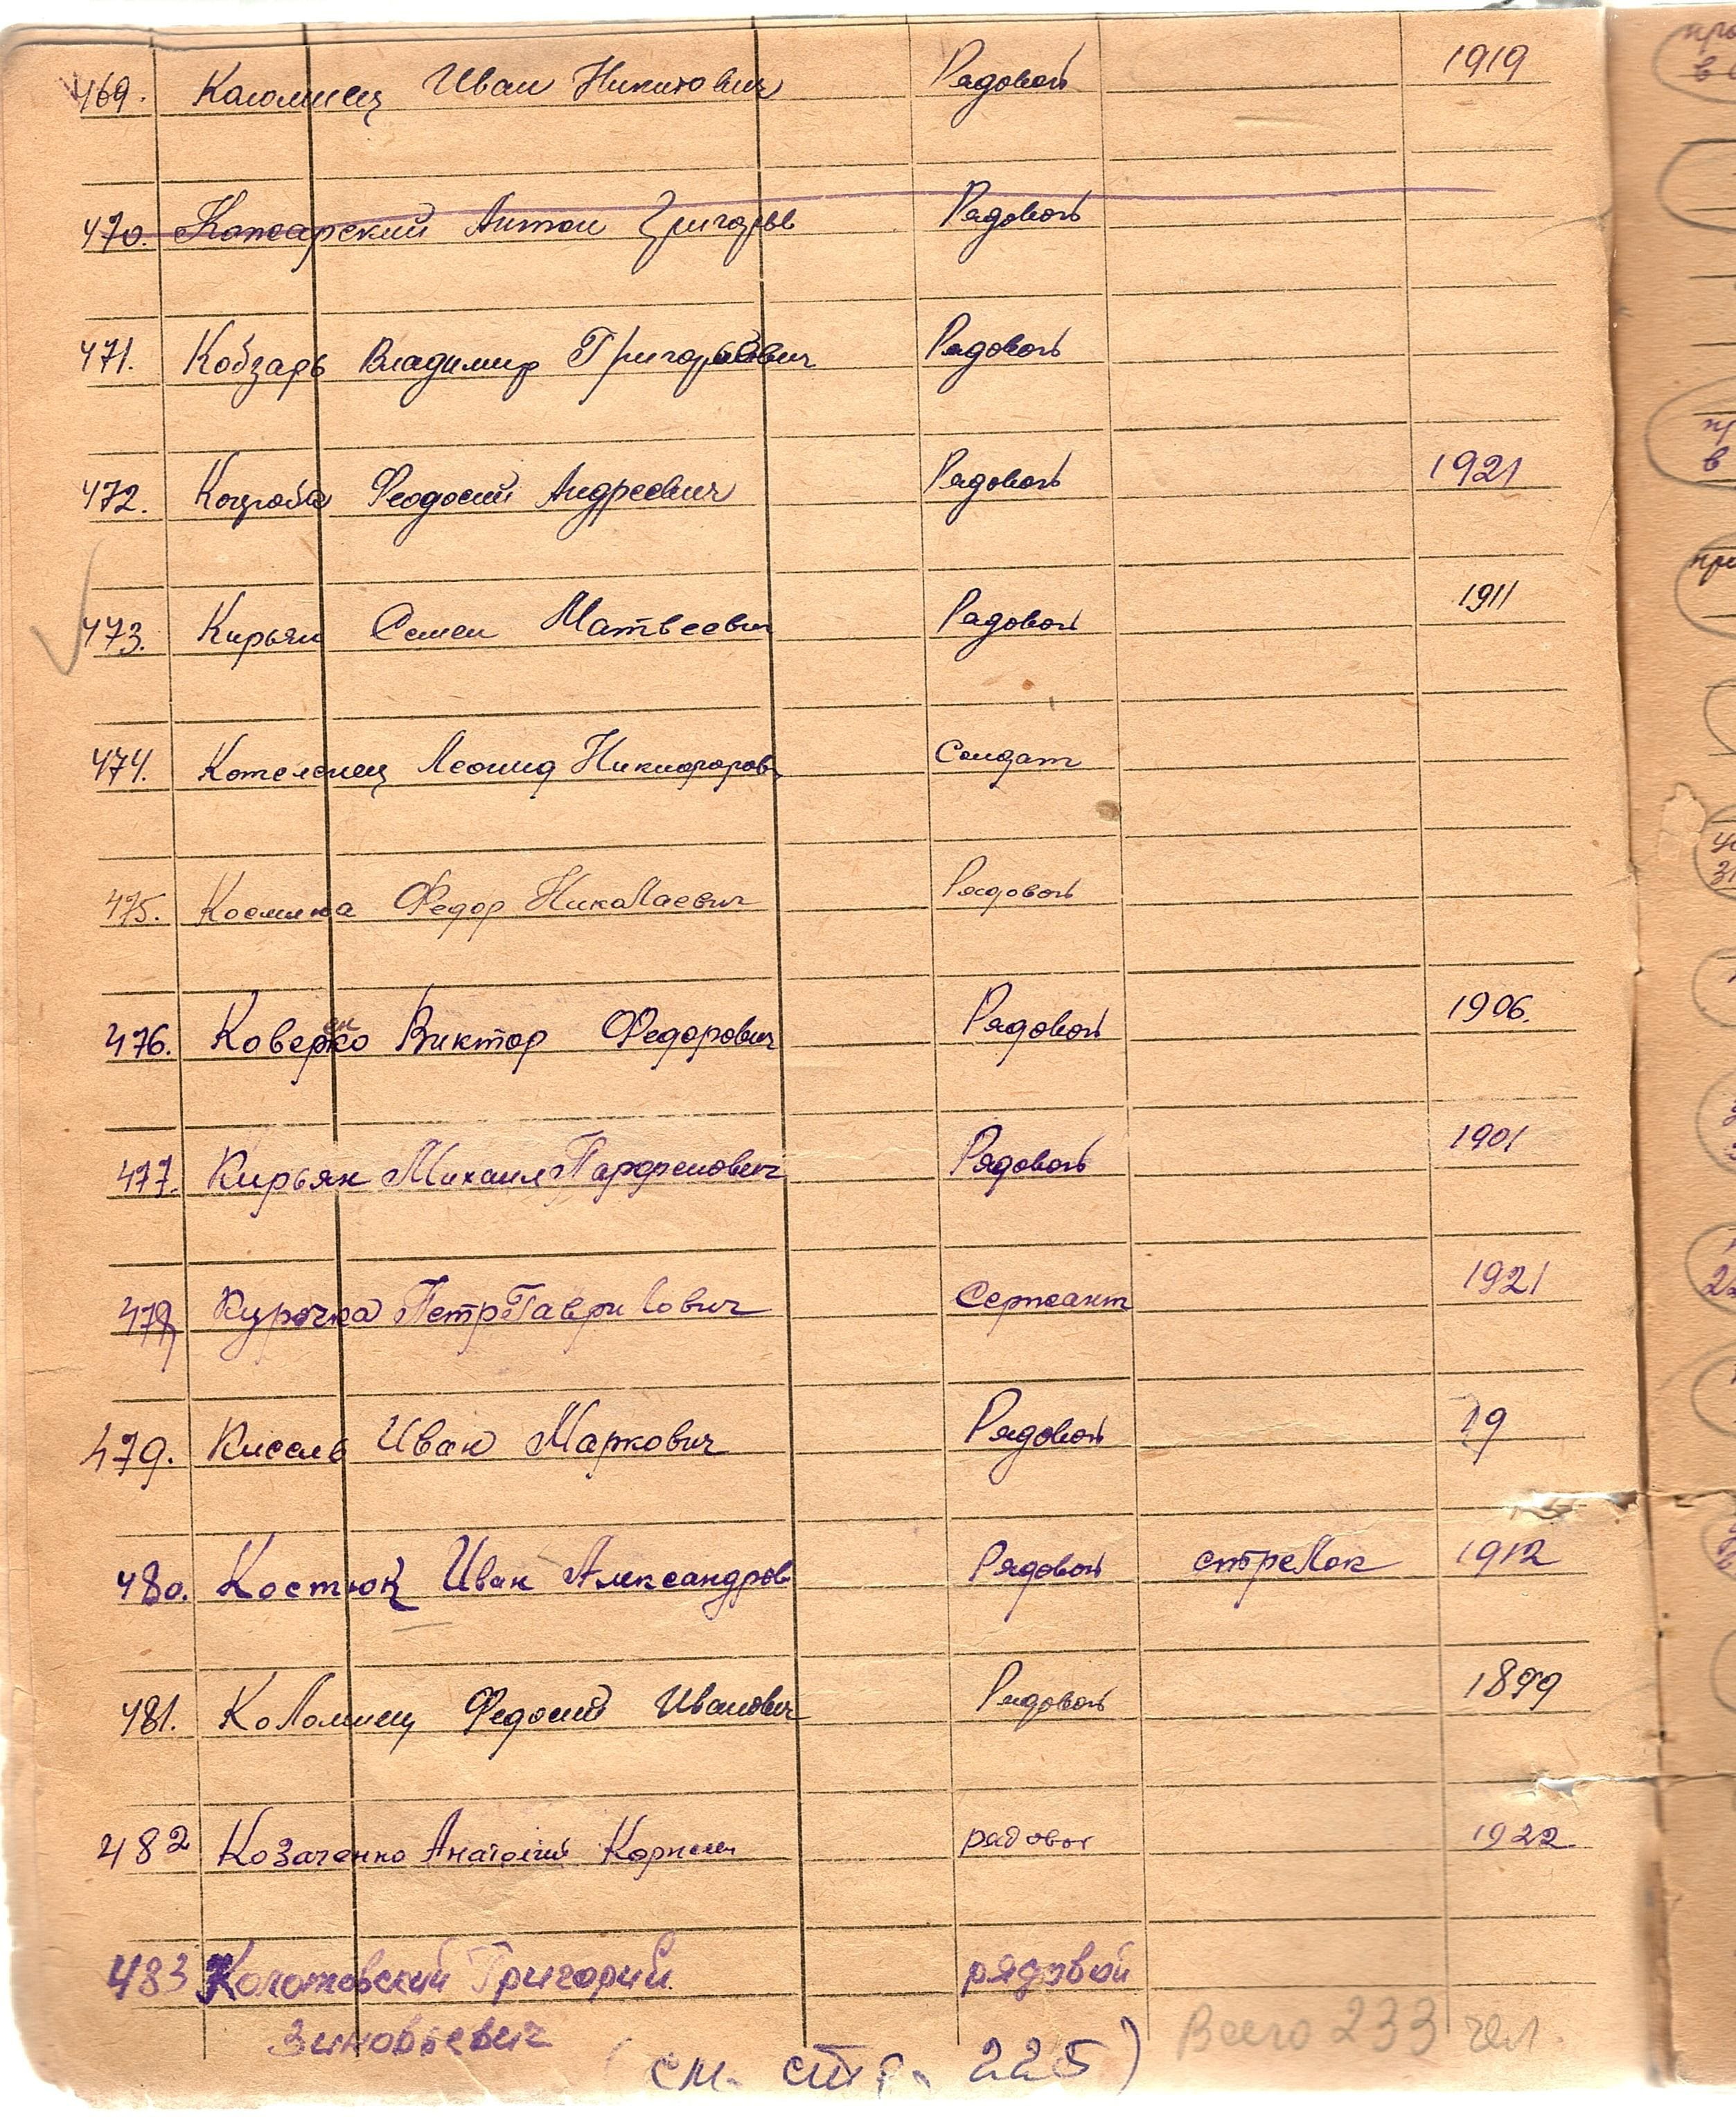 469. Коломиец Иван Никитович Рядовой 1919
470. Кожарский Антон Григорьев Рядовой
471. Кобзарь Владимир Григорьевич Рядовой
472. Коцюба Феодосий Андреевич Рядовой 1921
473. Кирьян Семен Матвеевич Рядовой 1911
474. Котеленец Леонид Никифоров. Солдат
475. Федор Николаевич Рядовой
476. Коверенко Виктор Федорович Рядовой 1906.
477. Кирьян Михаил Парфенович Рядовой 1901
478 Курочка Петр Гаврилович Сержант 1921
479. Кисель Иван Маркович Рядовой 19
480. Костюк Иван Александров Рядовой стрелок 1912
481. Коломиец Федосий Иванович Рядовой 1899
482 Козаченко Анатолий Корнеич рядовой 1922.
483 Колотовский Григорий рядовой
Зиновьевич
Всего 233 чел.
(см. стр. 225)